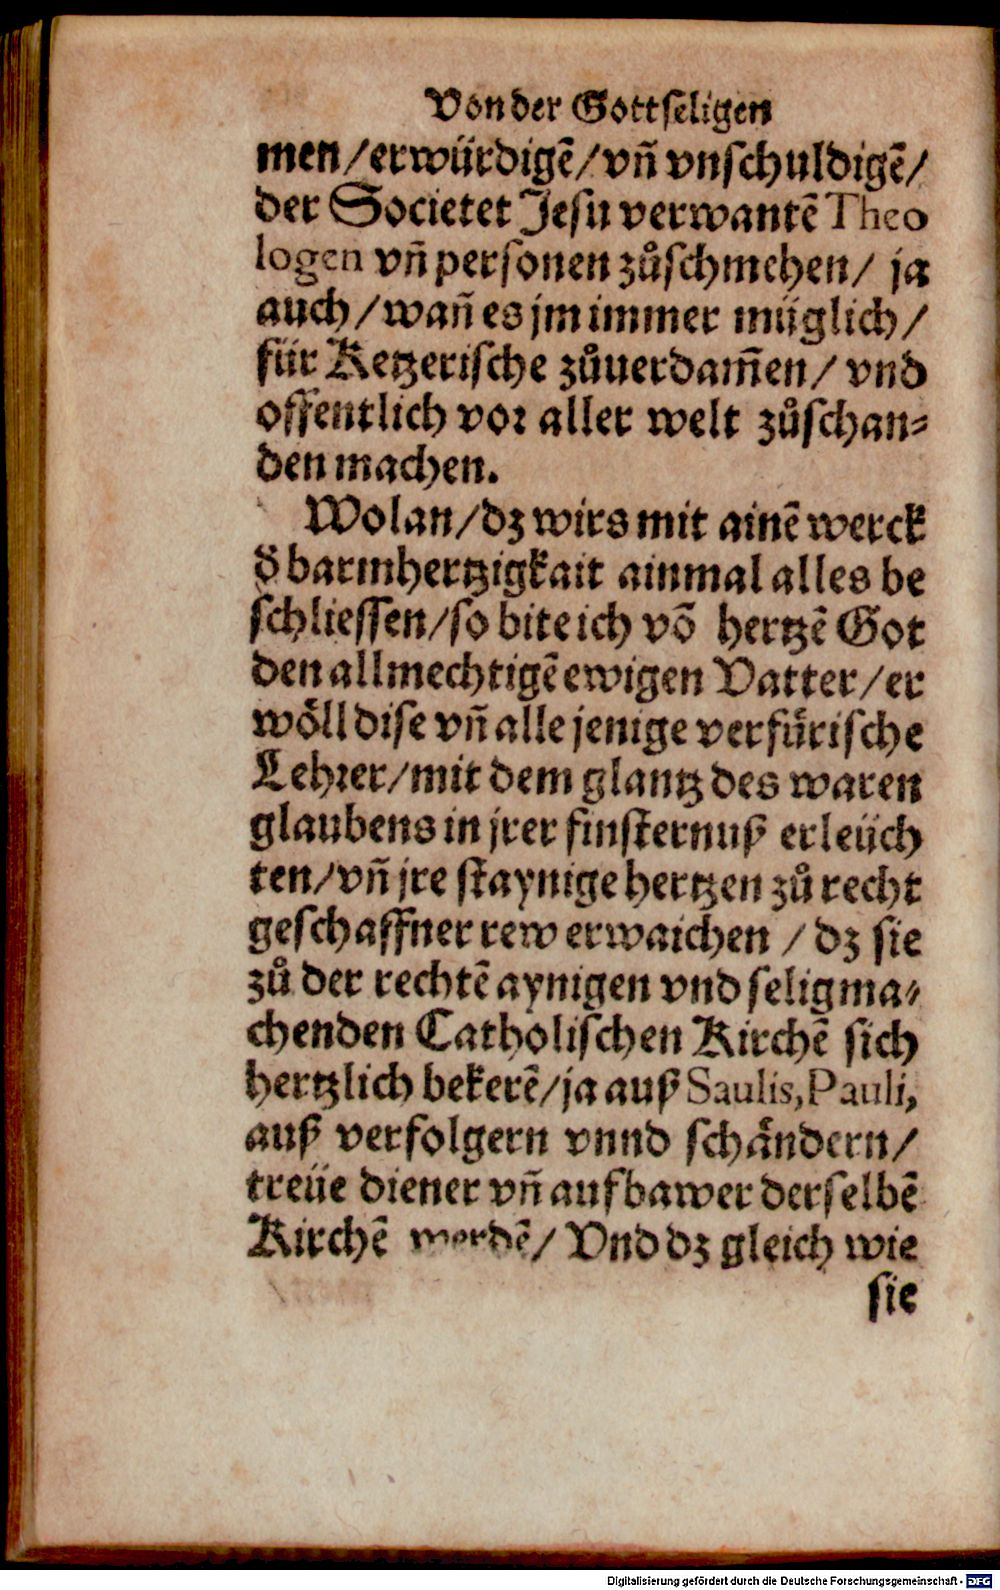 Von der Gottseligen
men/erwürdigẽ/vñ vnschuldigẽ/
der Societet Jesu verwantẽ Theo
logen vñ personen zůschmehen/ ja
auch/wañ es jm immer müglich/
für Ketzerische zůuerdam̃en/ vnd
offentlich vor aller welt zůschan⸗
den machen.
Wolan/dz wirs mit ainẽ werck
d̕ barmhertzigkait ainmal alles be
schliessen/so bite ich võ hertzẽ Got
den allmechtigẽ ewigen Vatter/er
wöll dise vñ alle jenige verfürische
Lehrer/mit dem glantz des waren
glaubens in jrer finsternuß erleüch
ten/vñ jre staynige hertzen zů recht
geschaffner rew erwaichen / dz sie
zů der rechtẽ aynigen vnd seligma⸗
chenden Catholischen Kirchẽ sich
hertzlich bekerẽ/ja auß Saulis, Pauli,
auß verfolgern vnnd schändern/
treüe diener vñ aufbawer derselbẽ
Kirchẽ werdẽ/ Vnd dz gleich wie
sie
Digitalisierung gefördert durch die Deutsche Forschungsgemeinschaft - DFG